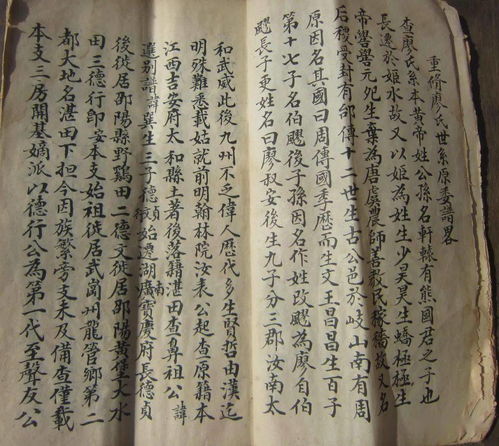 重修廖氏世系原委譜畧
查廖氏系本黄帝姓公孫名軒轅有熊國君之子也
長逸於姬水故又以姬為姓生少昊昊生蟜極極生
帝嚳嚳元妃生棄為唐虞農師善教民稼穡故又名
后稷受封有邰傳十二世生古公邑於岐山南有周
原因名其國曰周傳國季歷而生文王昌昌生百子
第十七子名伯飂後子孫因名作姓改飂為廖自伯
飂長子更姓名曰廖叔安後生九子分三郡汝南太
和武威此後九州不乏偉人歴代多生賢哲由漢迄
明殊難悉载姑就前明翰林院汝表公起查原籍本
江西吉安府太和縣土著後落籍湛田查鼻祖公諱
暹别譜諱冀生三子德禎始遷湖廣寳慶府長德貞
後徙居邵陽縣野鷄田二德文徙居邵陽黄隆大水
田三德行即安本支始祖徙居武崗州龍管鄉第二
都大地名湛田下担今因族繁旁支未及備查僅載
本支三房開基嫡派以德行公為第一代至聲友公